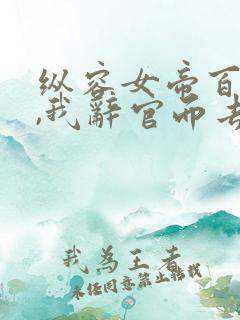 纵容女帝百
,我辞官而去
我為王者
未经同意禁止转载